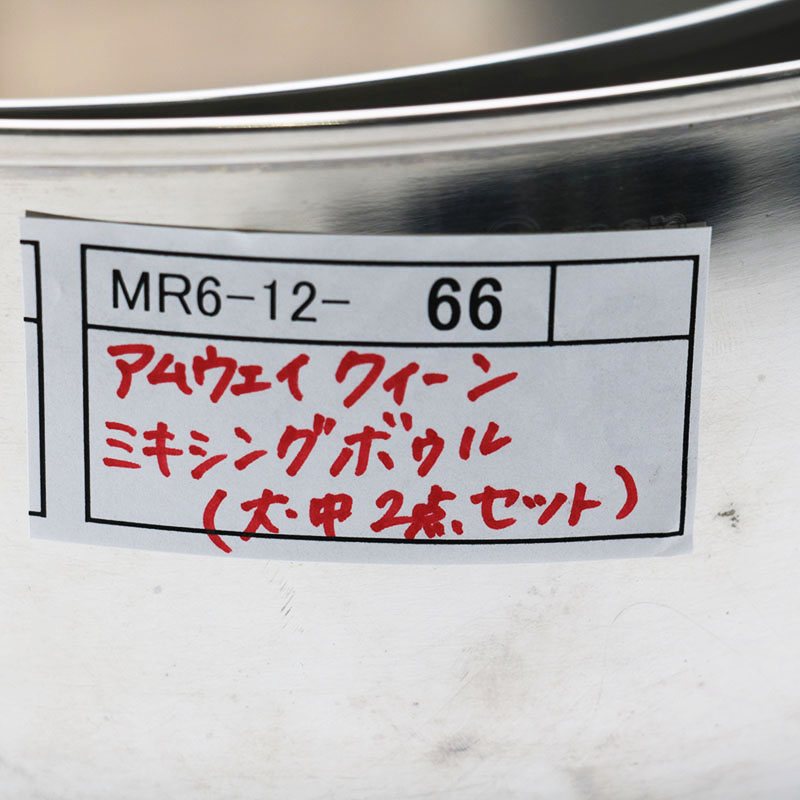 MR6-12- 66
アムウェイ クィーン
ミキシングボゥル
(大・中 2点セット)